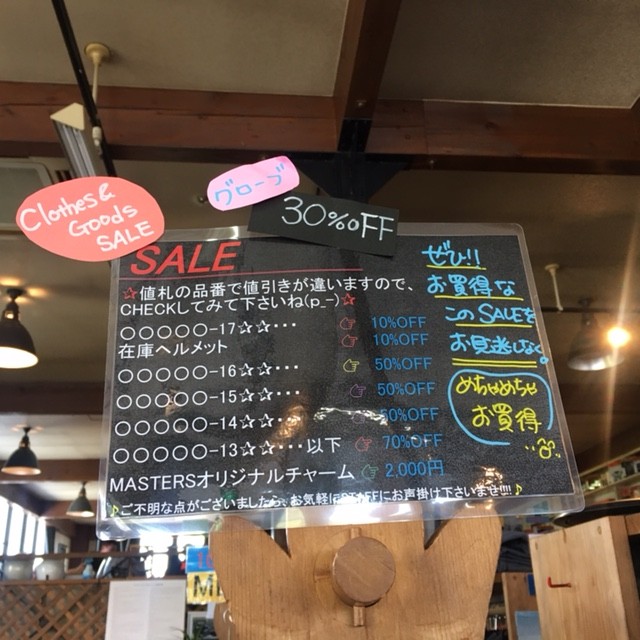 Clothes&
Goods
SALE
グローブ
30%OFF
SALE
☆値札の品番で値引きが違いますので、
CHECKしてみて下さいね(p_-)☆
○○○○○-17☆☆･･･ ☞ 10%OFF
在庫ヘルメット ☞ 10%OFF
○○○○○-16☆☆･･･ ☞ 50%OFF
○○○○○-15☆☆･･･ ☞ 50%OFF
○○○○○-14☆☆･･･ ☞ 50%OFF
○○○○○-13☆☆･･･以下 ☞ 70%OFF
MASTERSオリジナルチャーム ☞ 2,000円
♪ご不明な点がございましたら、お気軽にSTAFFにお声掛け下さいませ!!!!♪
ぜひ!!
お買得な
このSALEを
お見逃しなく。
めちゃめちゃ
お買得